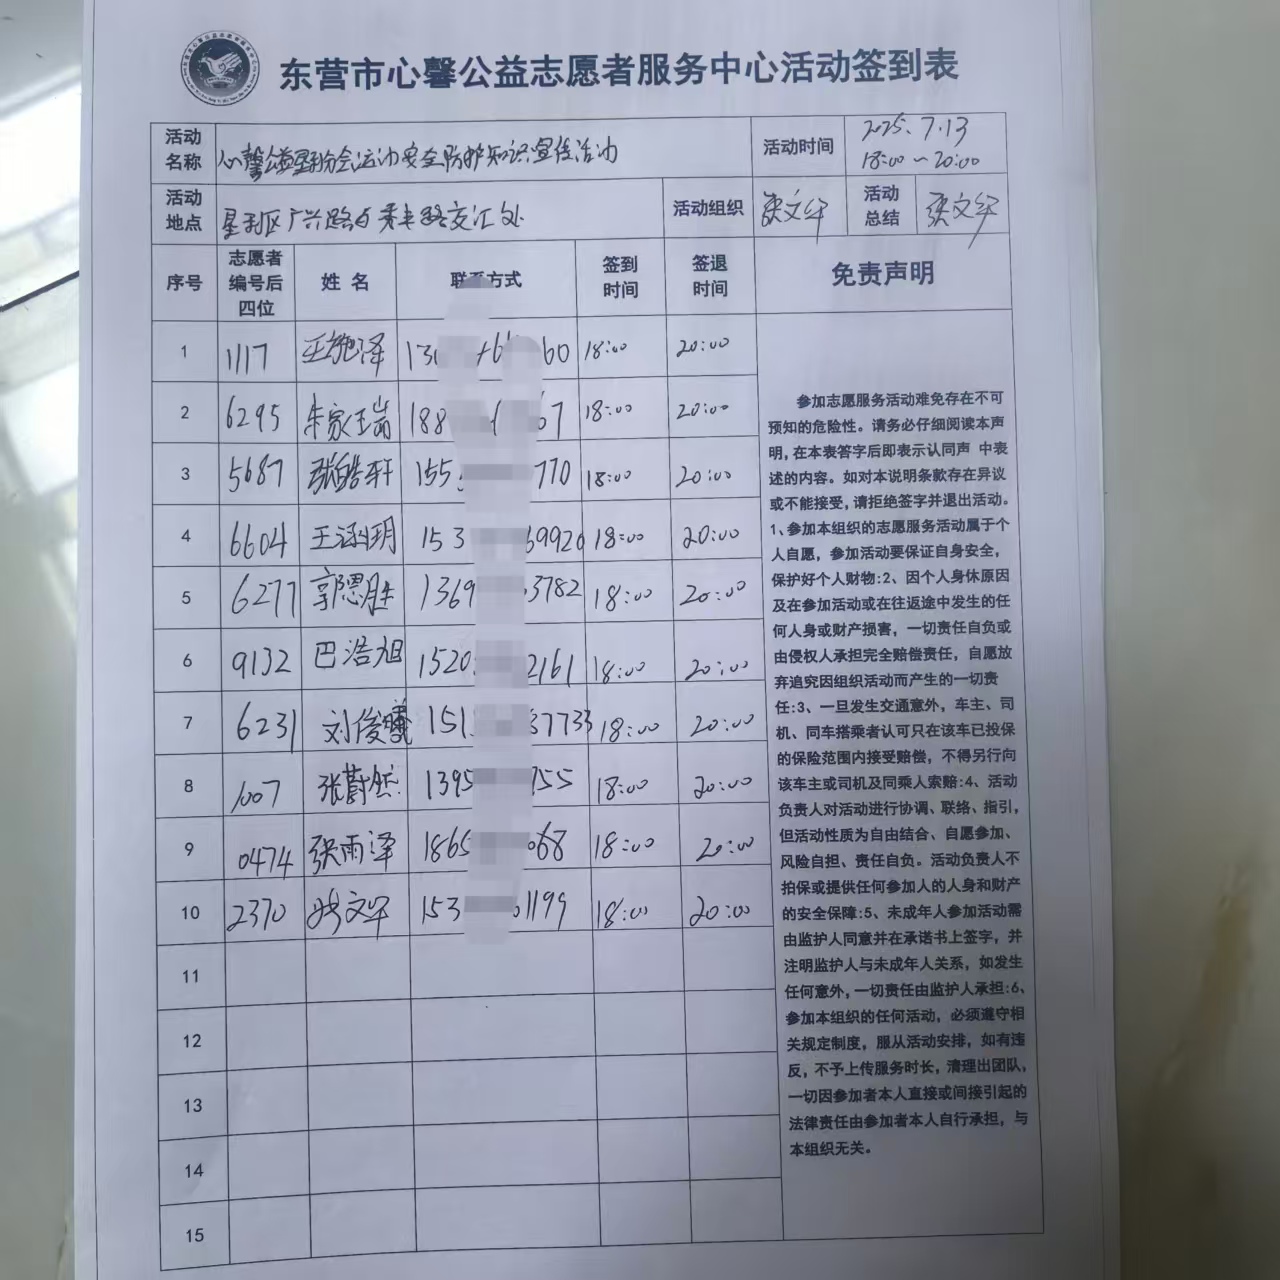 东营市心馨公益志愿者服务中心活动签到表
活动名称 心馨公益垦利分会运动安全防护知识宣传活动 活动时间 2025.7.13 18:00~20:00
活动地点 垦利区广兴路与 路交汇处 活动组织 文华 活动总结 文华
序号 志愿者编号后四位 姓名 联系方式 签到时间 签退时间 免责声明
1 1117 王 泽 13 60 18:00 20:00
2 6295 家 188 67 18:00 20:00
3 5687 张皓轩 155 770 18:00 20:00
4 6604 王涵玥 153 69920 18:00 20:00
5 6277 郭恩胜 1369 3782 18:00 20:00
6 9132 巴浩旭 1520 2161 18:00 20:00
7 6231 刘俊曦 151 37733 18:00 20:00
8 1007 张蔚然 1395 755 18:00 20:00
9 0474 张雨泽 1865 068 18:00 20:00
10 2370 文华 153 1199 18:00 20:00
11
12
13
14
15
参加志愿服务活动难免存在不可
预知的危险性。请务必仔细阅读本声
明,在本表签字后即表示认同声 中表
述的内容。如对本说明条款存在异议
或不能接受,请拒绝签字并退出活动。
1、参加本组织的志愿服务活动属于个
人自愿，参加活动要保证自身安全，
保护好个人财物:2、因个人身休原因
及在参加活动或在往返途中发生的任
何人身或财产损害，一切责任自负或
由侵权人承担完全赔偿责任，自愿放
弃追究因组织活动而产生的一切责
任:3、一旦发生交通意外，车主、司
机、同车搭乘者认可只在该车已投保
的保险范围内接受赔偿，不得另行向
该车主或司机及同乘人索赔:4、活动
负责人对活动进行协调、联络、指引，
但活动性质为自由结合、自愿参加、
风险自担、责任自负。活动负责人不
拍保或提供任何参加人的人身和财产
的安全保障:5、未成年人参加活动需
由监护人同意并在承诺书上签字，并
注明监护人与未成年人关系，如发生
任何意外,一切责任由监护人承担:6、
参加本组织的任何活动，必须遵守相
关规定制度，服从活动安排，如有违
反，不予上传服务时长，清理出团队，
一切因参加者本人直接或间接引起的
法律责任由参加者本人自行承担，与
本组织无关。